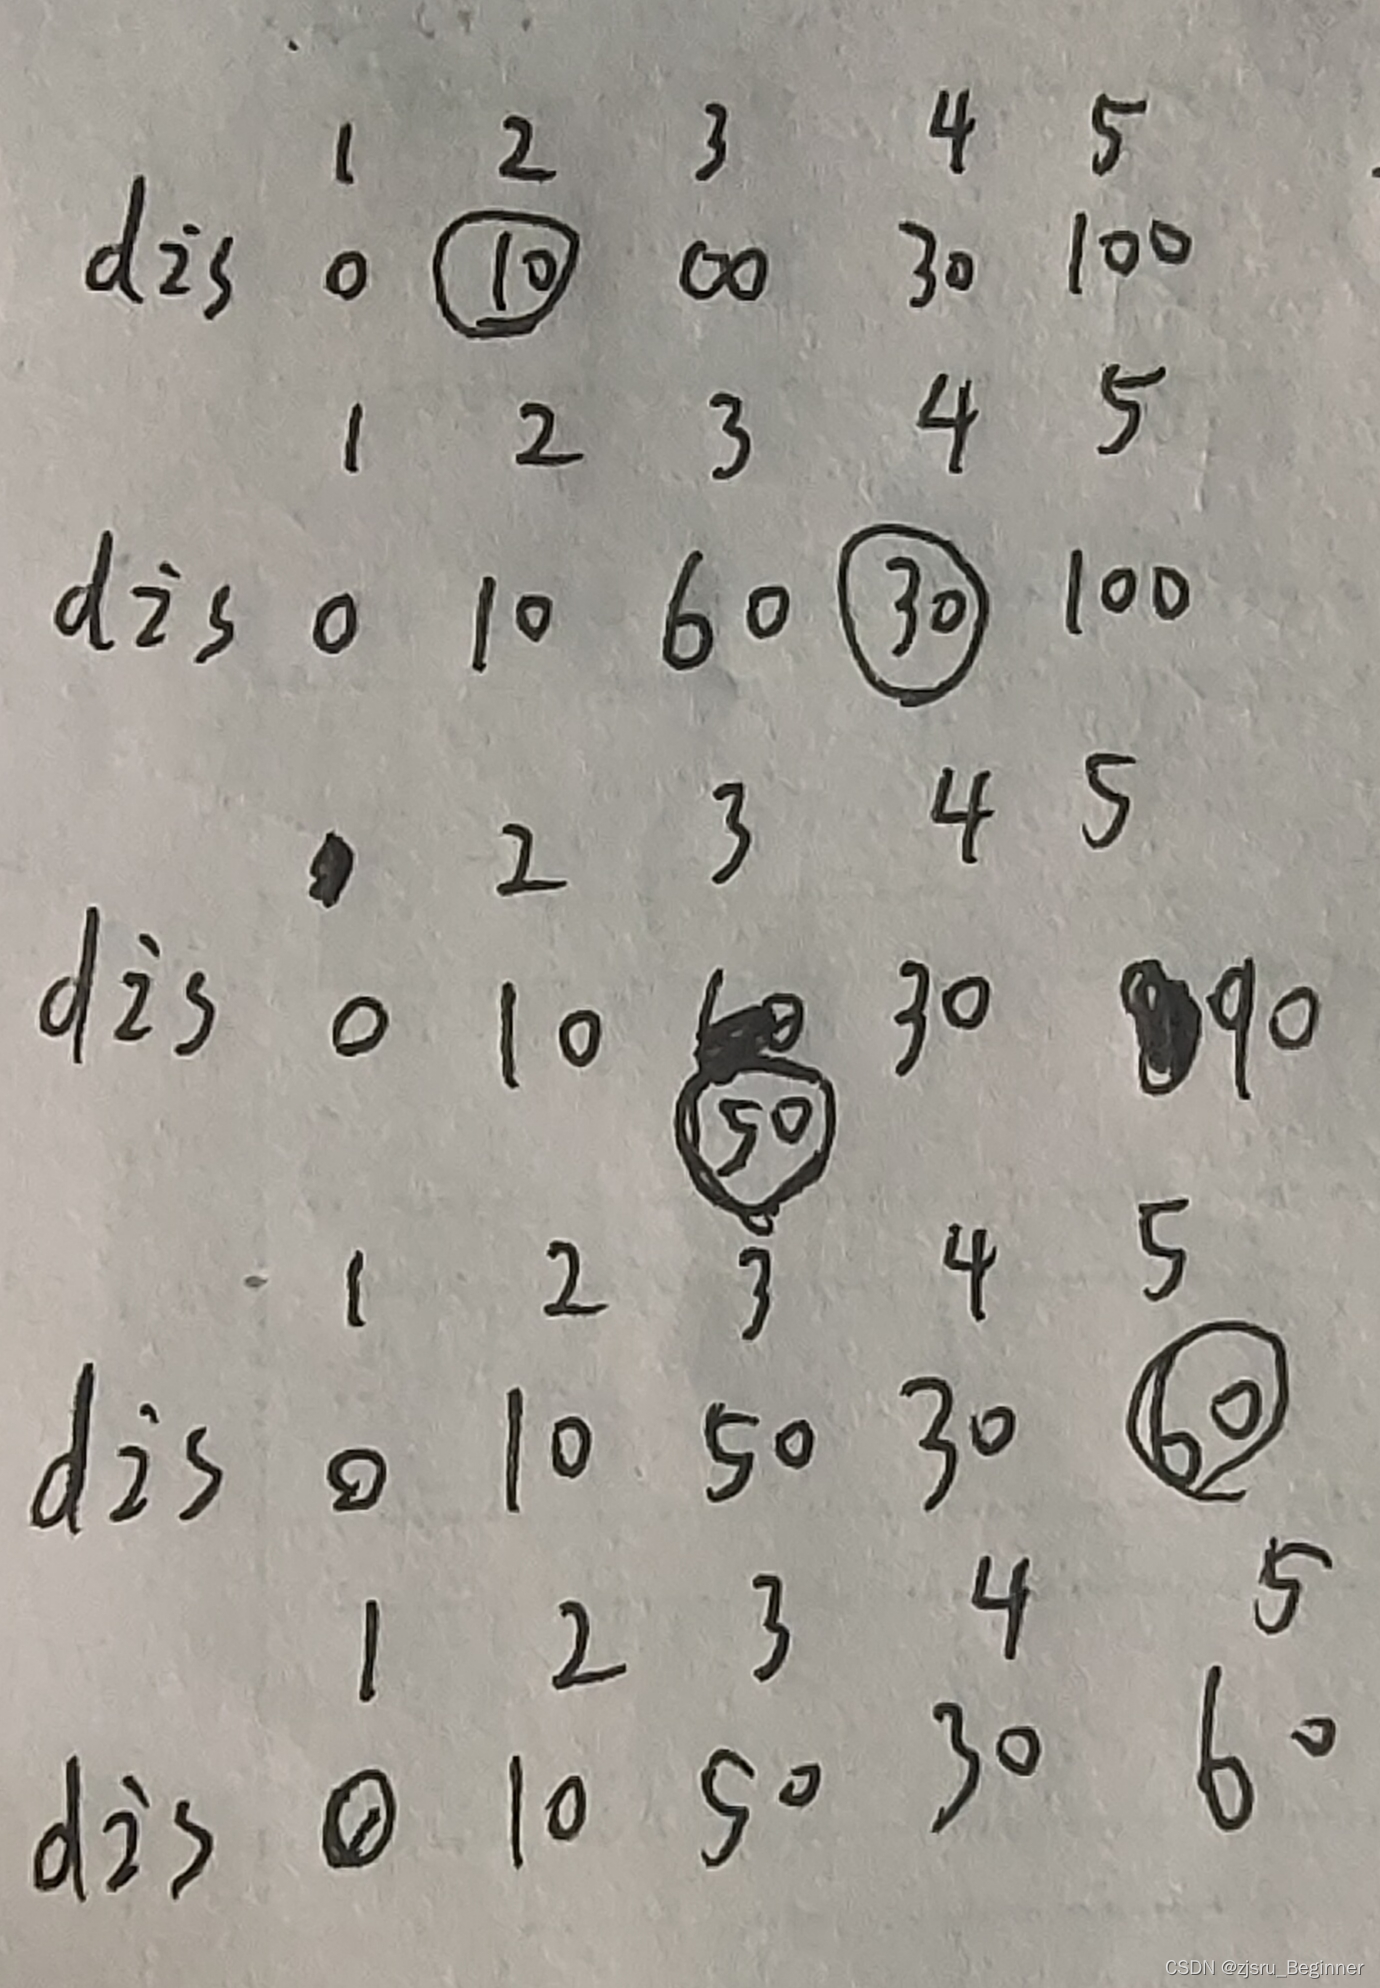 1 2 3 4 5
dis 0 10 ∞ 30 100
1 2 3 4 5
dis 0 10 60 30 100
2 3 4 5
dis 0 10 30 90
50
1 2 3 4 5
dis 0 10 50 30 60
1 2 3 4 5
dis 0 10 50 30 60
CSDN @zjsru_Beginner